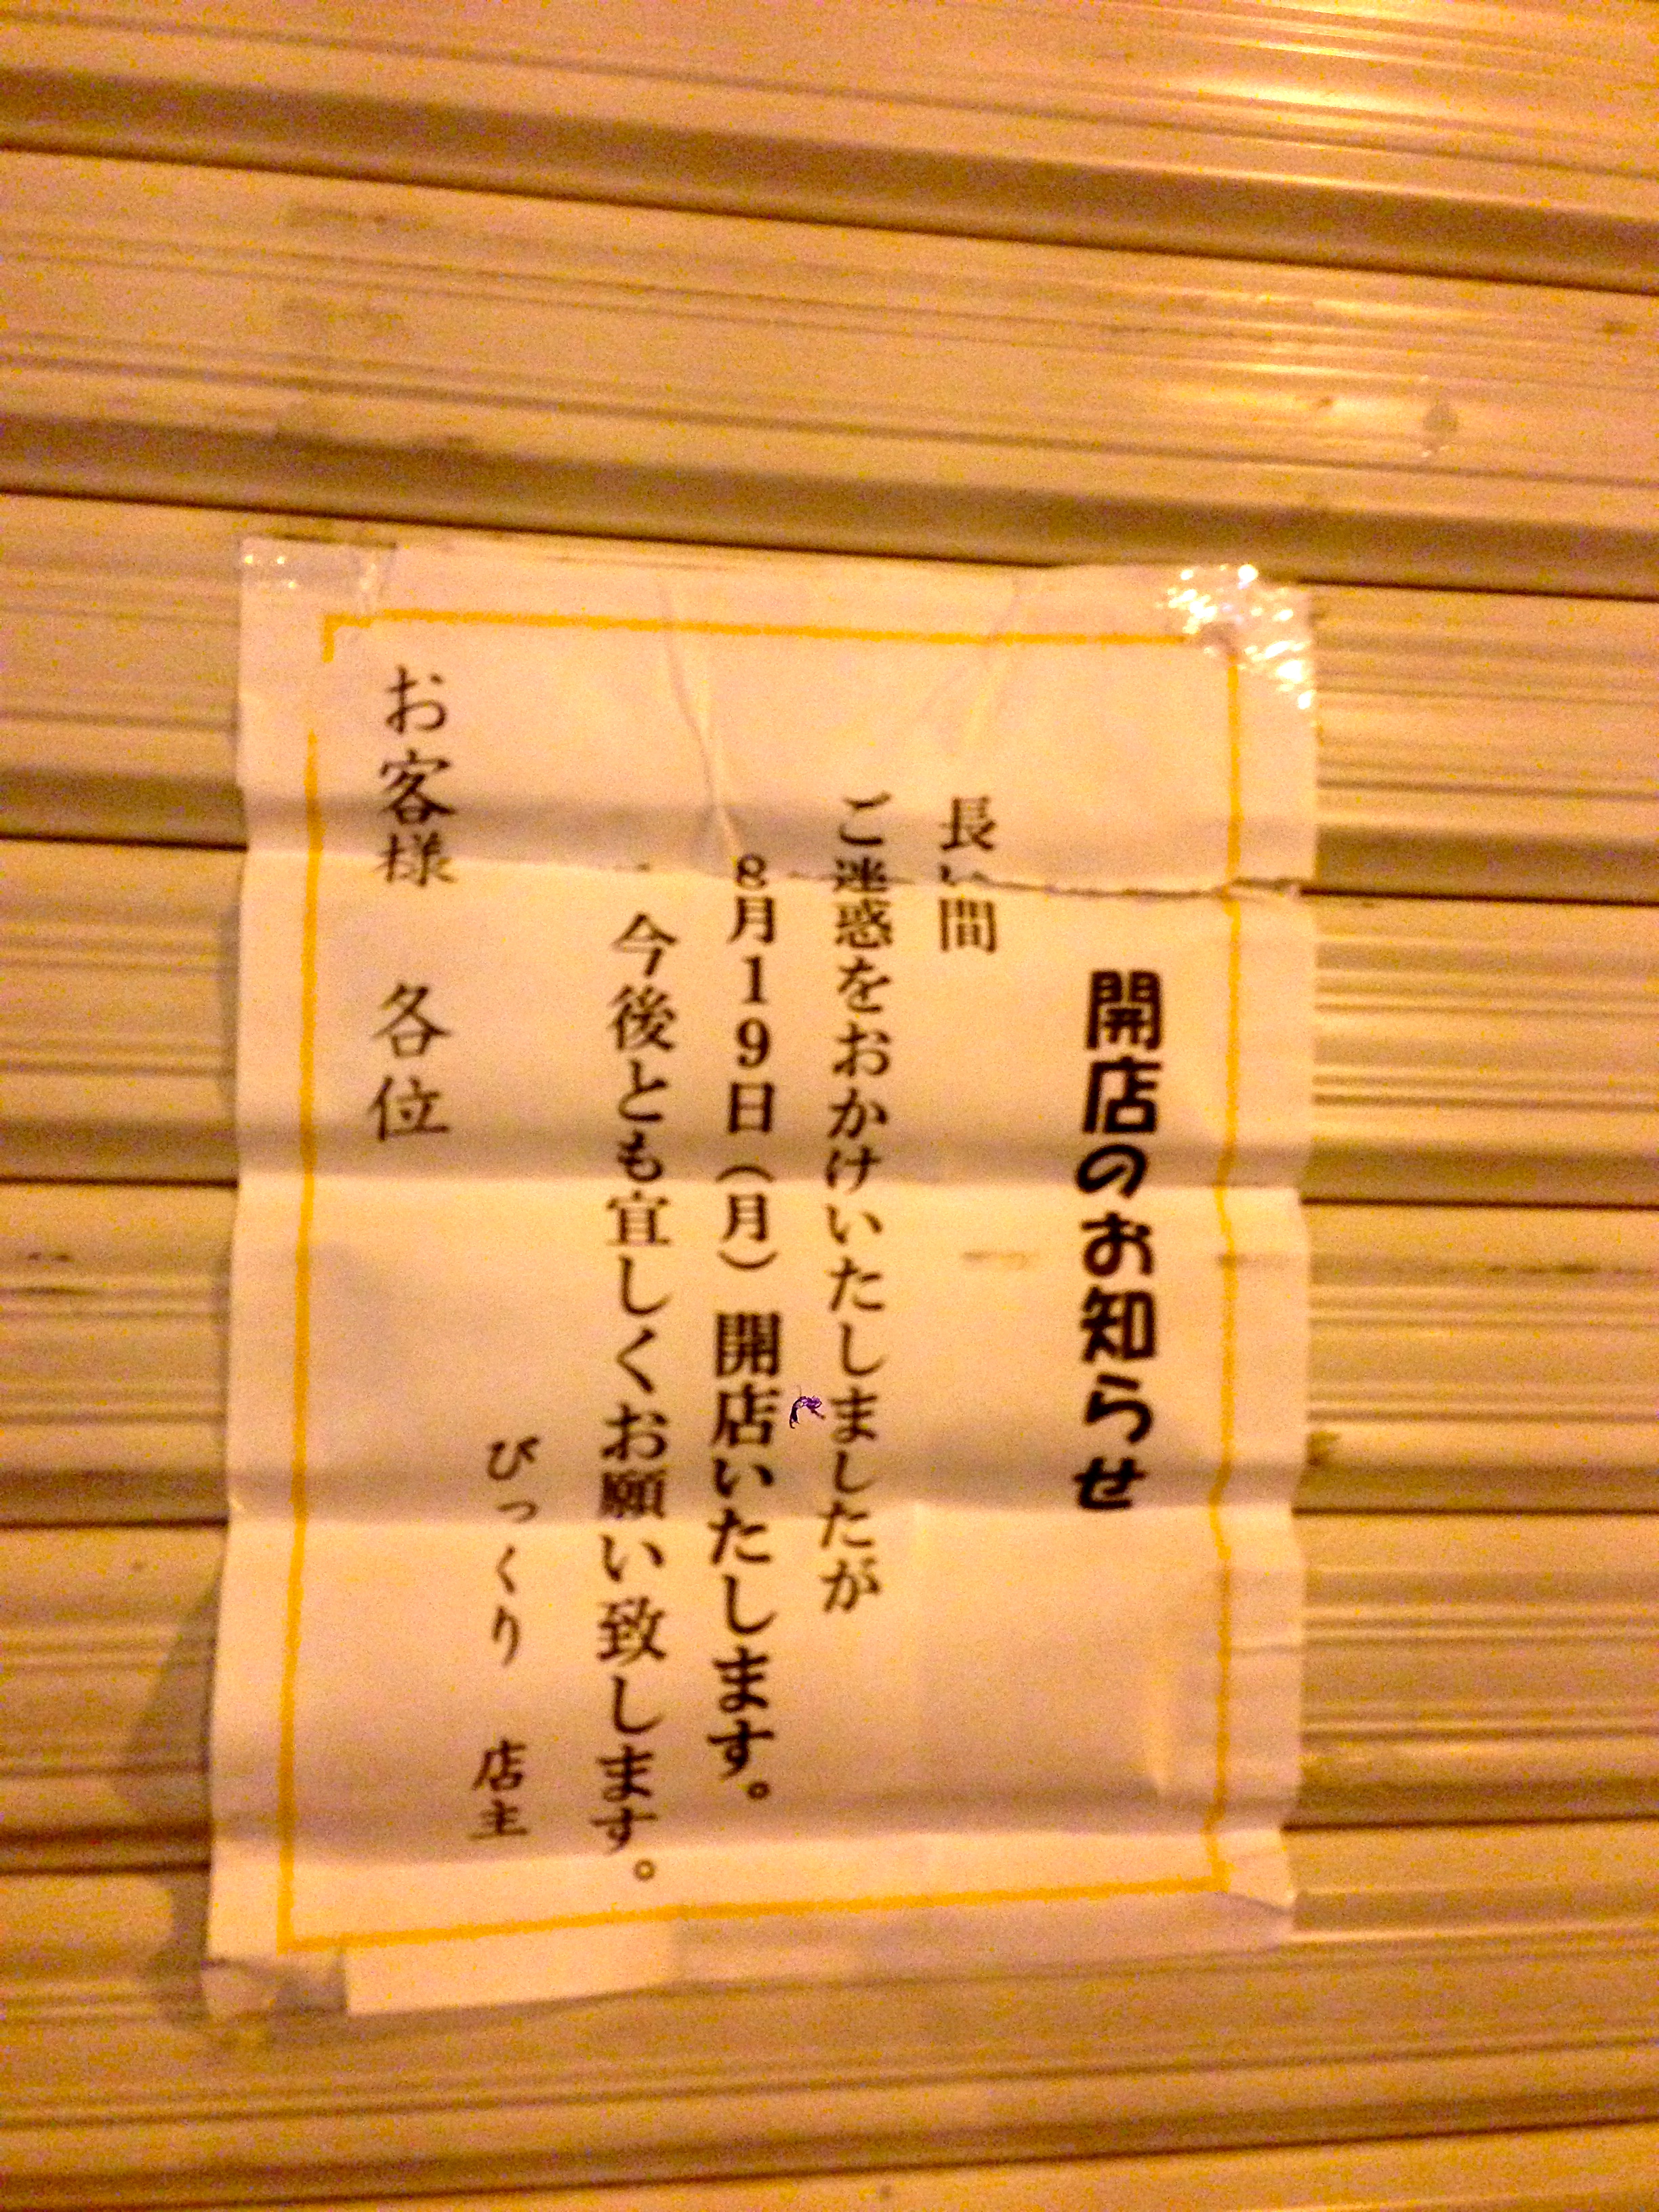 開店のお知らせ
長い間
ご迷惑をおかけいたしましたが
8月19日(月)開店いたします。
今後とも宜しくお願い致します。
びっくり 店主
お客様 各位